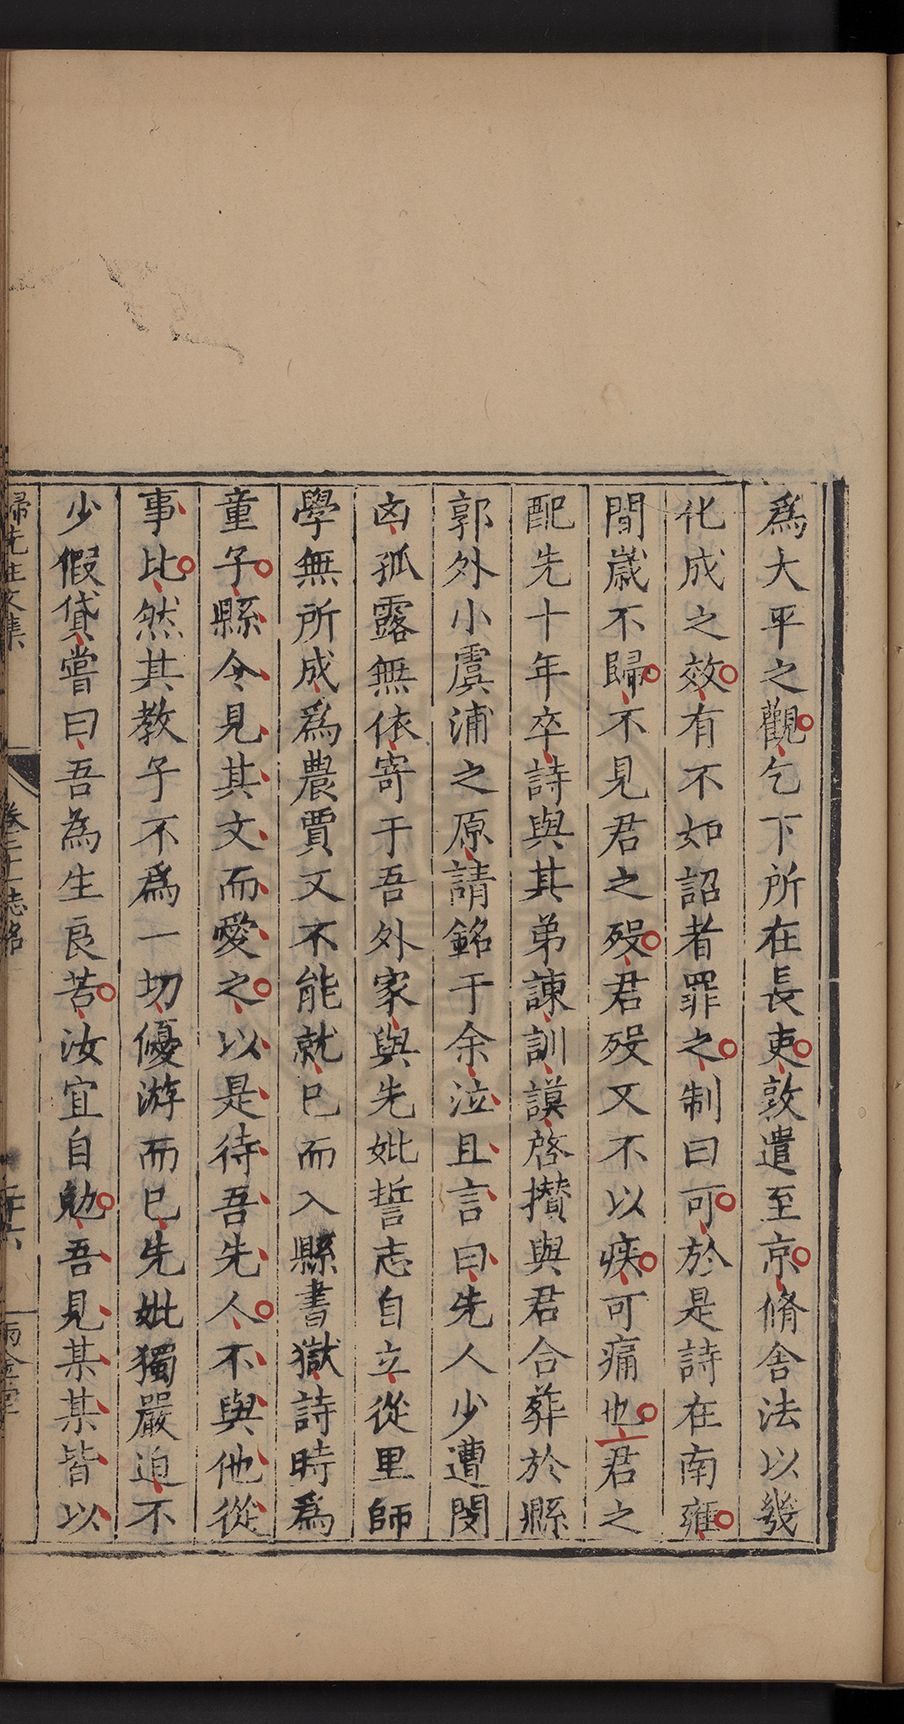 爲大平之觀乞下所在長吏敦遣至京脩舍法以幾
化成之效有不如詔者罪之制曰可於是詩在南雍
間歲不歸不見君之歿君歿又不以疾可痛也君之
配先十年卒詩與其弟諫訓謨啓攢與君合葬於縣
郭外小虞浦之原請銘于余泣且言曰先人少遭閔
凶孤露無依寄于吾外家與先妣誓志自立從里師
學無所成爲農賈又不能就已而入縣書獄詩時爲
童子縣令見其文而愛之以是待吾先人不與他從
事比然其教子不爲一切優游而已先妣獨嚴迫不
少假貸嘗曰吾為生良苦汝宜自勉吾見某某皆以
歸先生文集 志銘